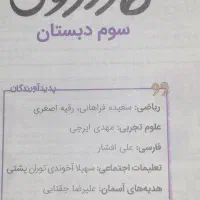 سوم دبستان
پدیدآورندگان
ریاضی: سعیده فراهانی، رقیه اصغری
علوم تجربی: مهدی ایرجی
فارسی: علی افشار
تعلیمات اجتماعی: سهیلا آخوندی توران پشتی
هدیه‌های آسمان: علیرضا حقتایی